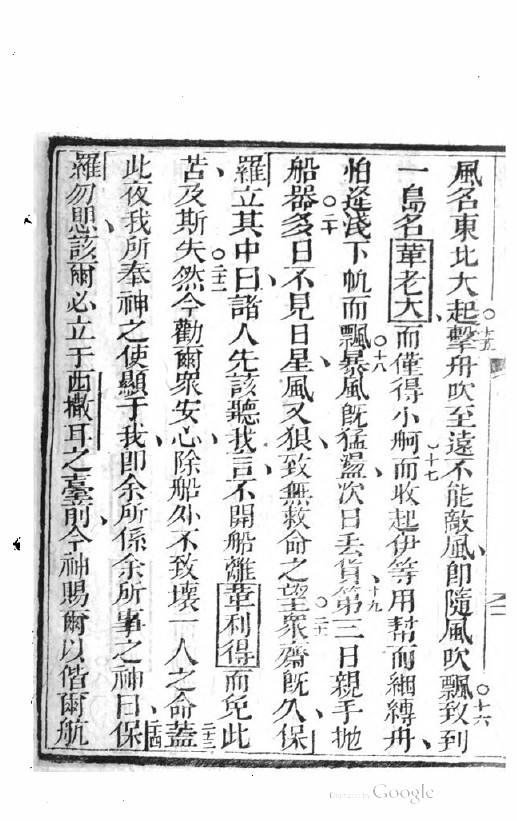 風名東北大起擊舟吹至遠不能敵風即隨風吹飄致到
一島名葦老大而僅得小舸而收起伊等用幫而綑縛舟
怕逆淺下帆而飄暴風既猛盪次日丟貨第三日親手拋
船器多日不見日星風又狠致無救命之望眾齋既久保
羅立其中曰諸人先該聽我言不開船離革利得而免此
苦及斯失然今勸爾眾安心除船外不致壞一人之命蓋
此夜我所奉神之使顯于我即余所係余所事之神曰保
羅勿思該爾必立于西撒耳之臺前今神賜爾以偕爾航
Google